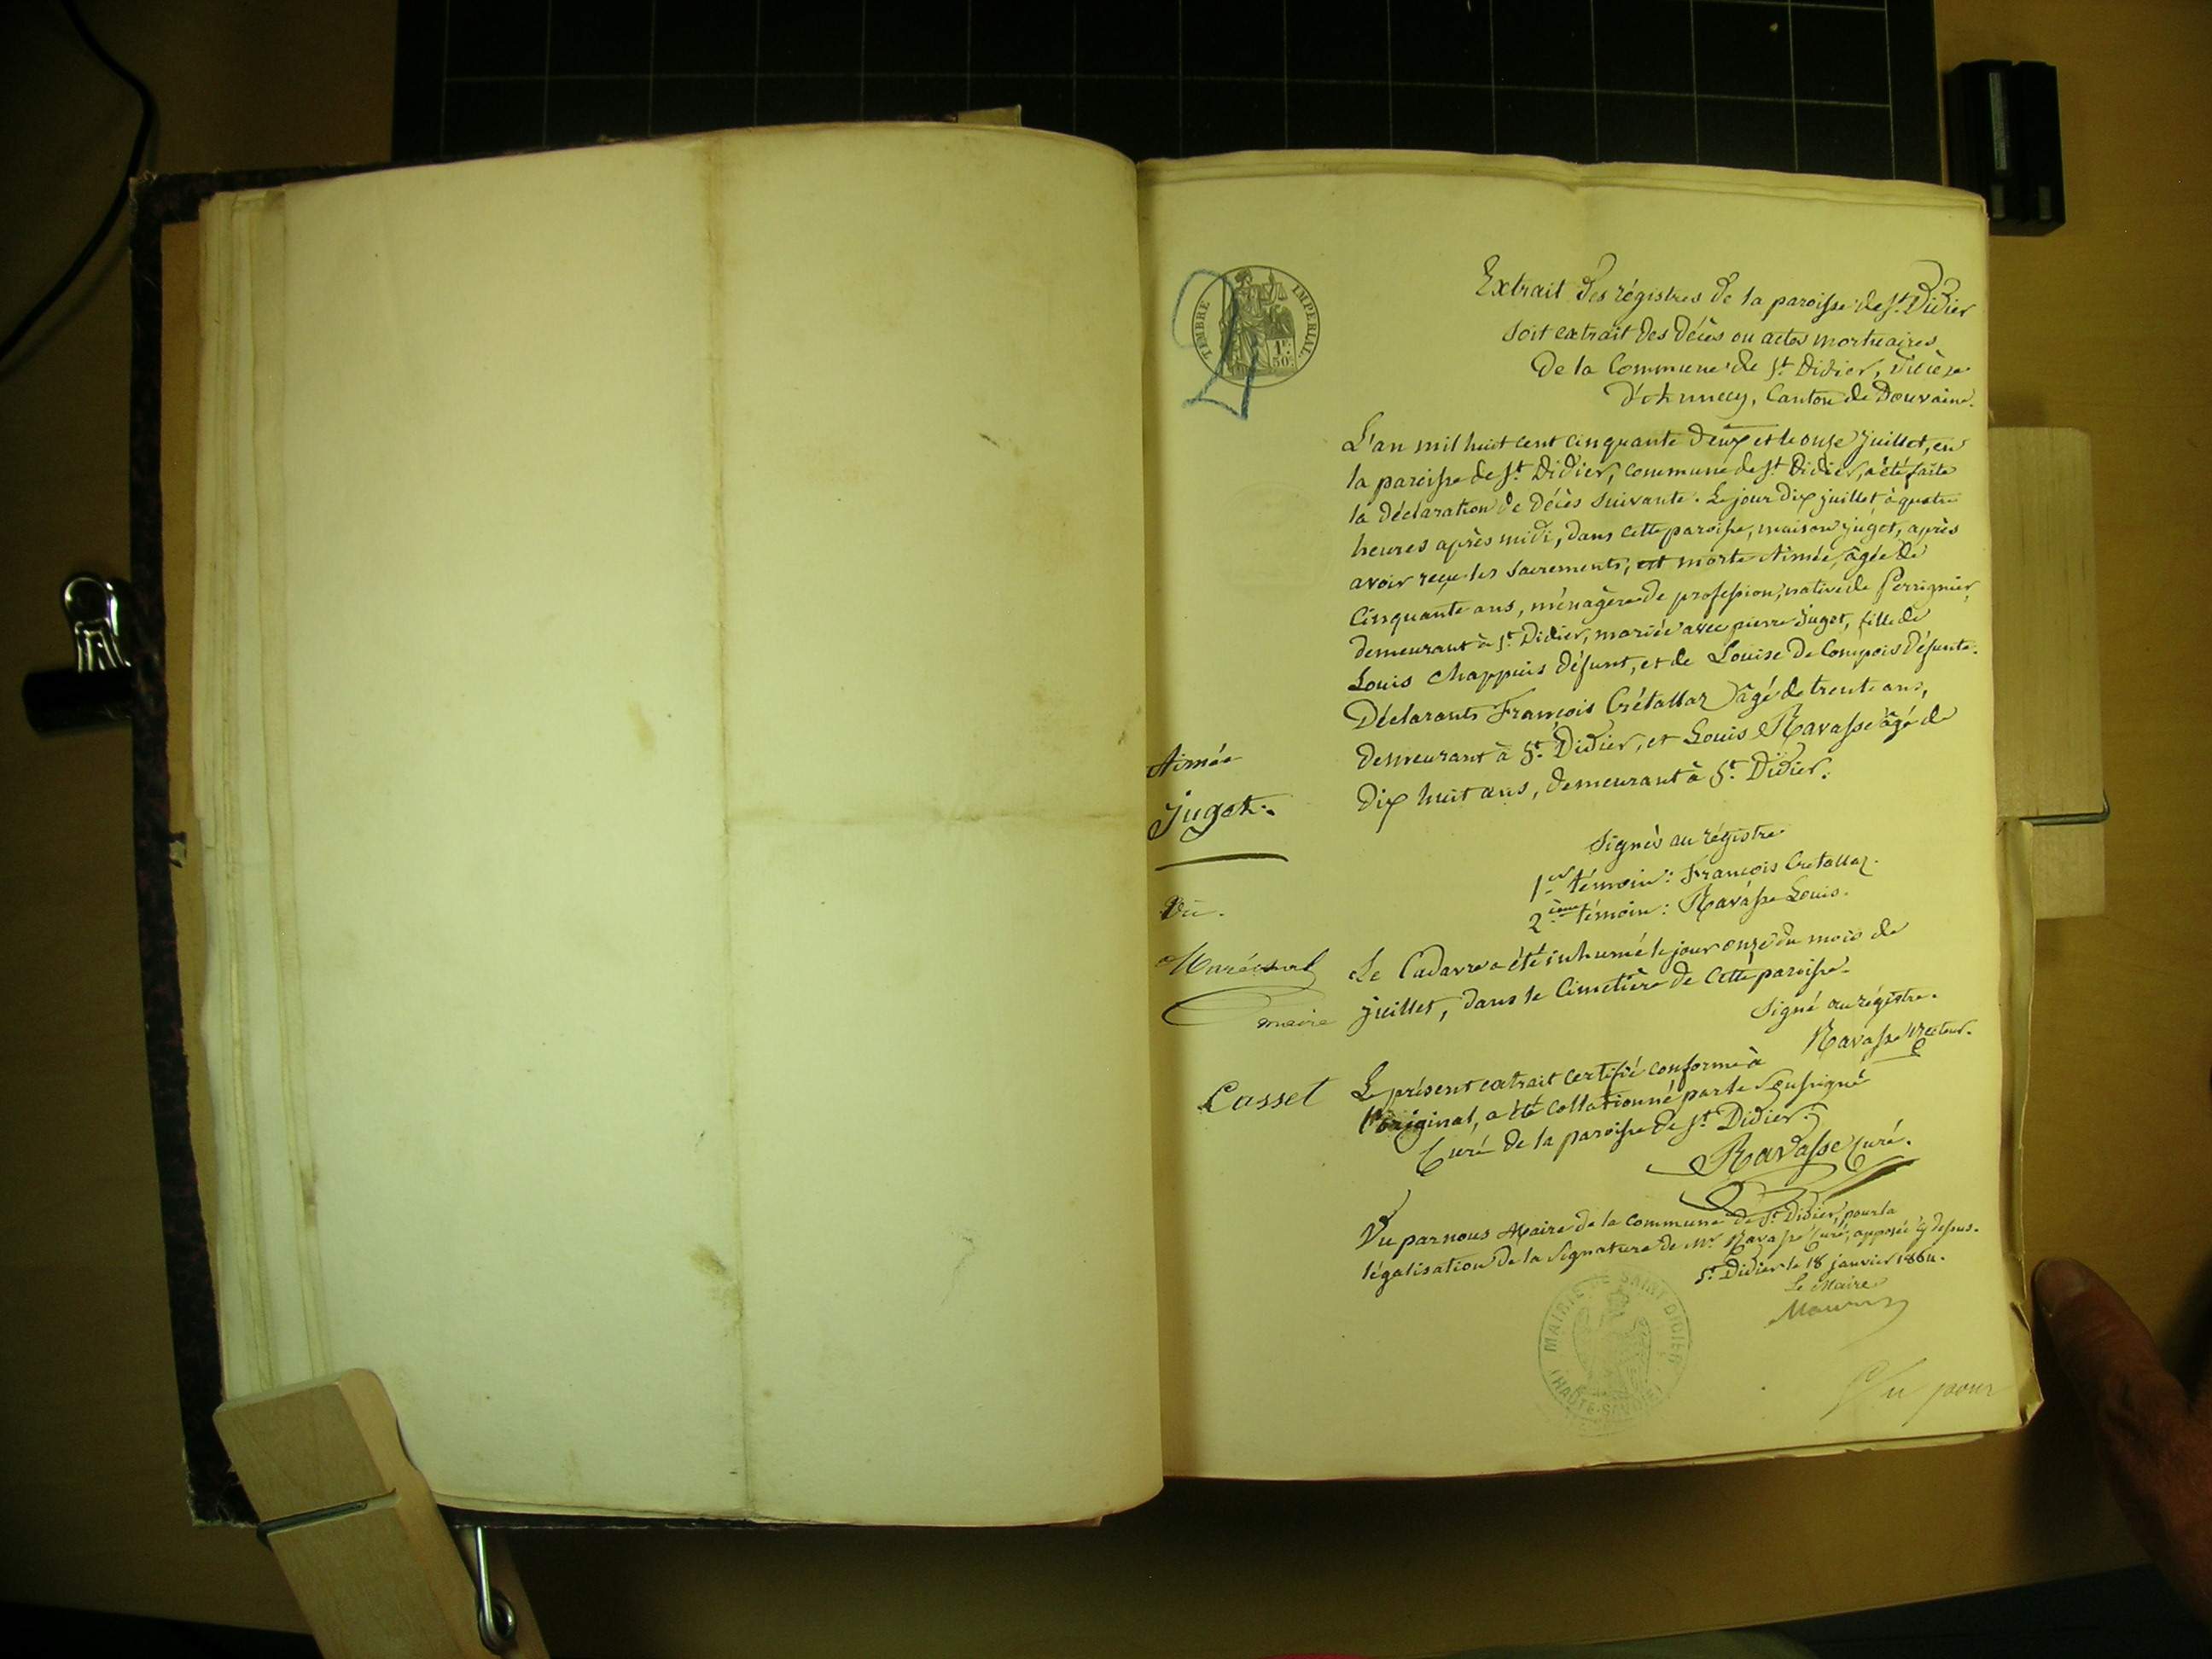 TIMBRE IMPERIAL
1F.
50c.
Extrait des régistres de la paroisse de St. Didier
soit extrait des décès ou actes mortuaires
de la Commune de St. Didier, diocèse
d'Annecy, Canton de Douvaine.
L'an mil huit cent cinquante deux et le onze juillet, en
la paroisse de St. Didier, commune de St. Didier, a été faite
la déclaration de décès suivante. Le jour dix juillet à quatre
heures après midi, dans cette paroisse, maison juget, après
avoir reçu les sacrements, est morte Aimée, âgée de
Cinquante ans, ménagère de profession, native de Perrignier,
demeurant à St. Didier, mariée avec pierre Juget, fille de
Louis Chappuis défunt, et de Louise de Compois défunte.
Déclarants François Crétallaz âgé de trente ans,
demeurant à St. Didier, et Louis Ravasse âgé de
dix huit ans, demeurant à St. Didier.
Aimée
juget.
Signés au régistre
1er témoin: François Cretallaz.
2ième témoin: Ravasse Louis.
Vu.
maire
Le Cadavre a été inhumé le jour onze du mois de
juillet, dans le Cimetière de cette paroisse.
Signé au régistre.
Ravasse recteur.
Casset
Le présent extrait certifié conforme à
l'original, a été collationné par le soussigné
Curé de la paroisse de St. Didier.
Ravasse Curé.
Vu par nous Maire de la commune de St. Didier, pour la
légalisation de la signature de Mr. Ravasse Curé, apposée cy dessus.
St. Didier le 18 janvier 1864.
Le Maire
MAIRIE DE SAINT-DIDIER
(HAUTE-SAVOIE)
Vu pour